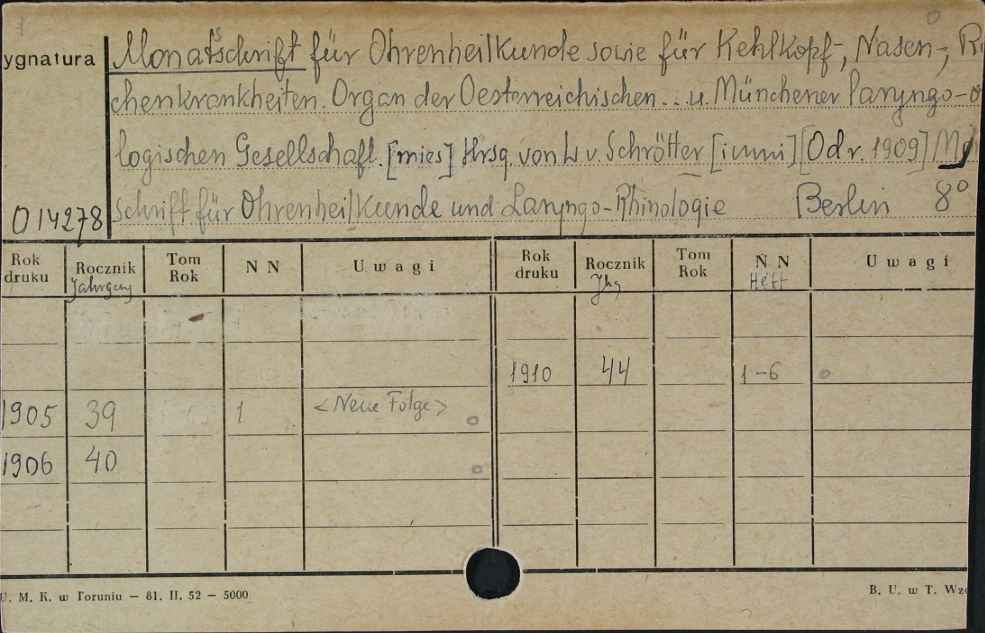 ygnatura
Monatsschrift für Ohrenheilkunde sowie für Kehlkopf-, Nasen-, R
chenkrankheiten. Organ der Oesterreichischen... u. Münchener Laryngo-o
logischen Gesellschaft. [mies] Hrsg. von L. v. Schrötter [i inni] [Od r. 1909]
schrift für Ohrenheilkunde und Laryngo-Rhinologie Berlin 8°
014278
Rok druku Rocznik Jahrgang Tom Rok N N Uwagi Rok druku Rocznik Jhg Tom Rok N N Heft Uwagi
1910 44 1-6
1905 39 1 <Neue Folge>
1906 40
U. M. K. w Toruniu — 81. II. 52 — 5000
B. U. w T. Wzó